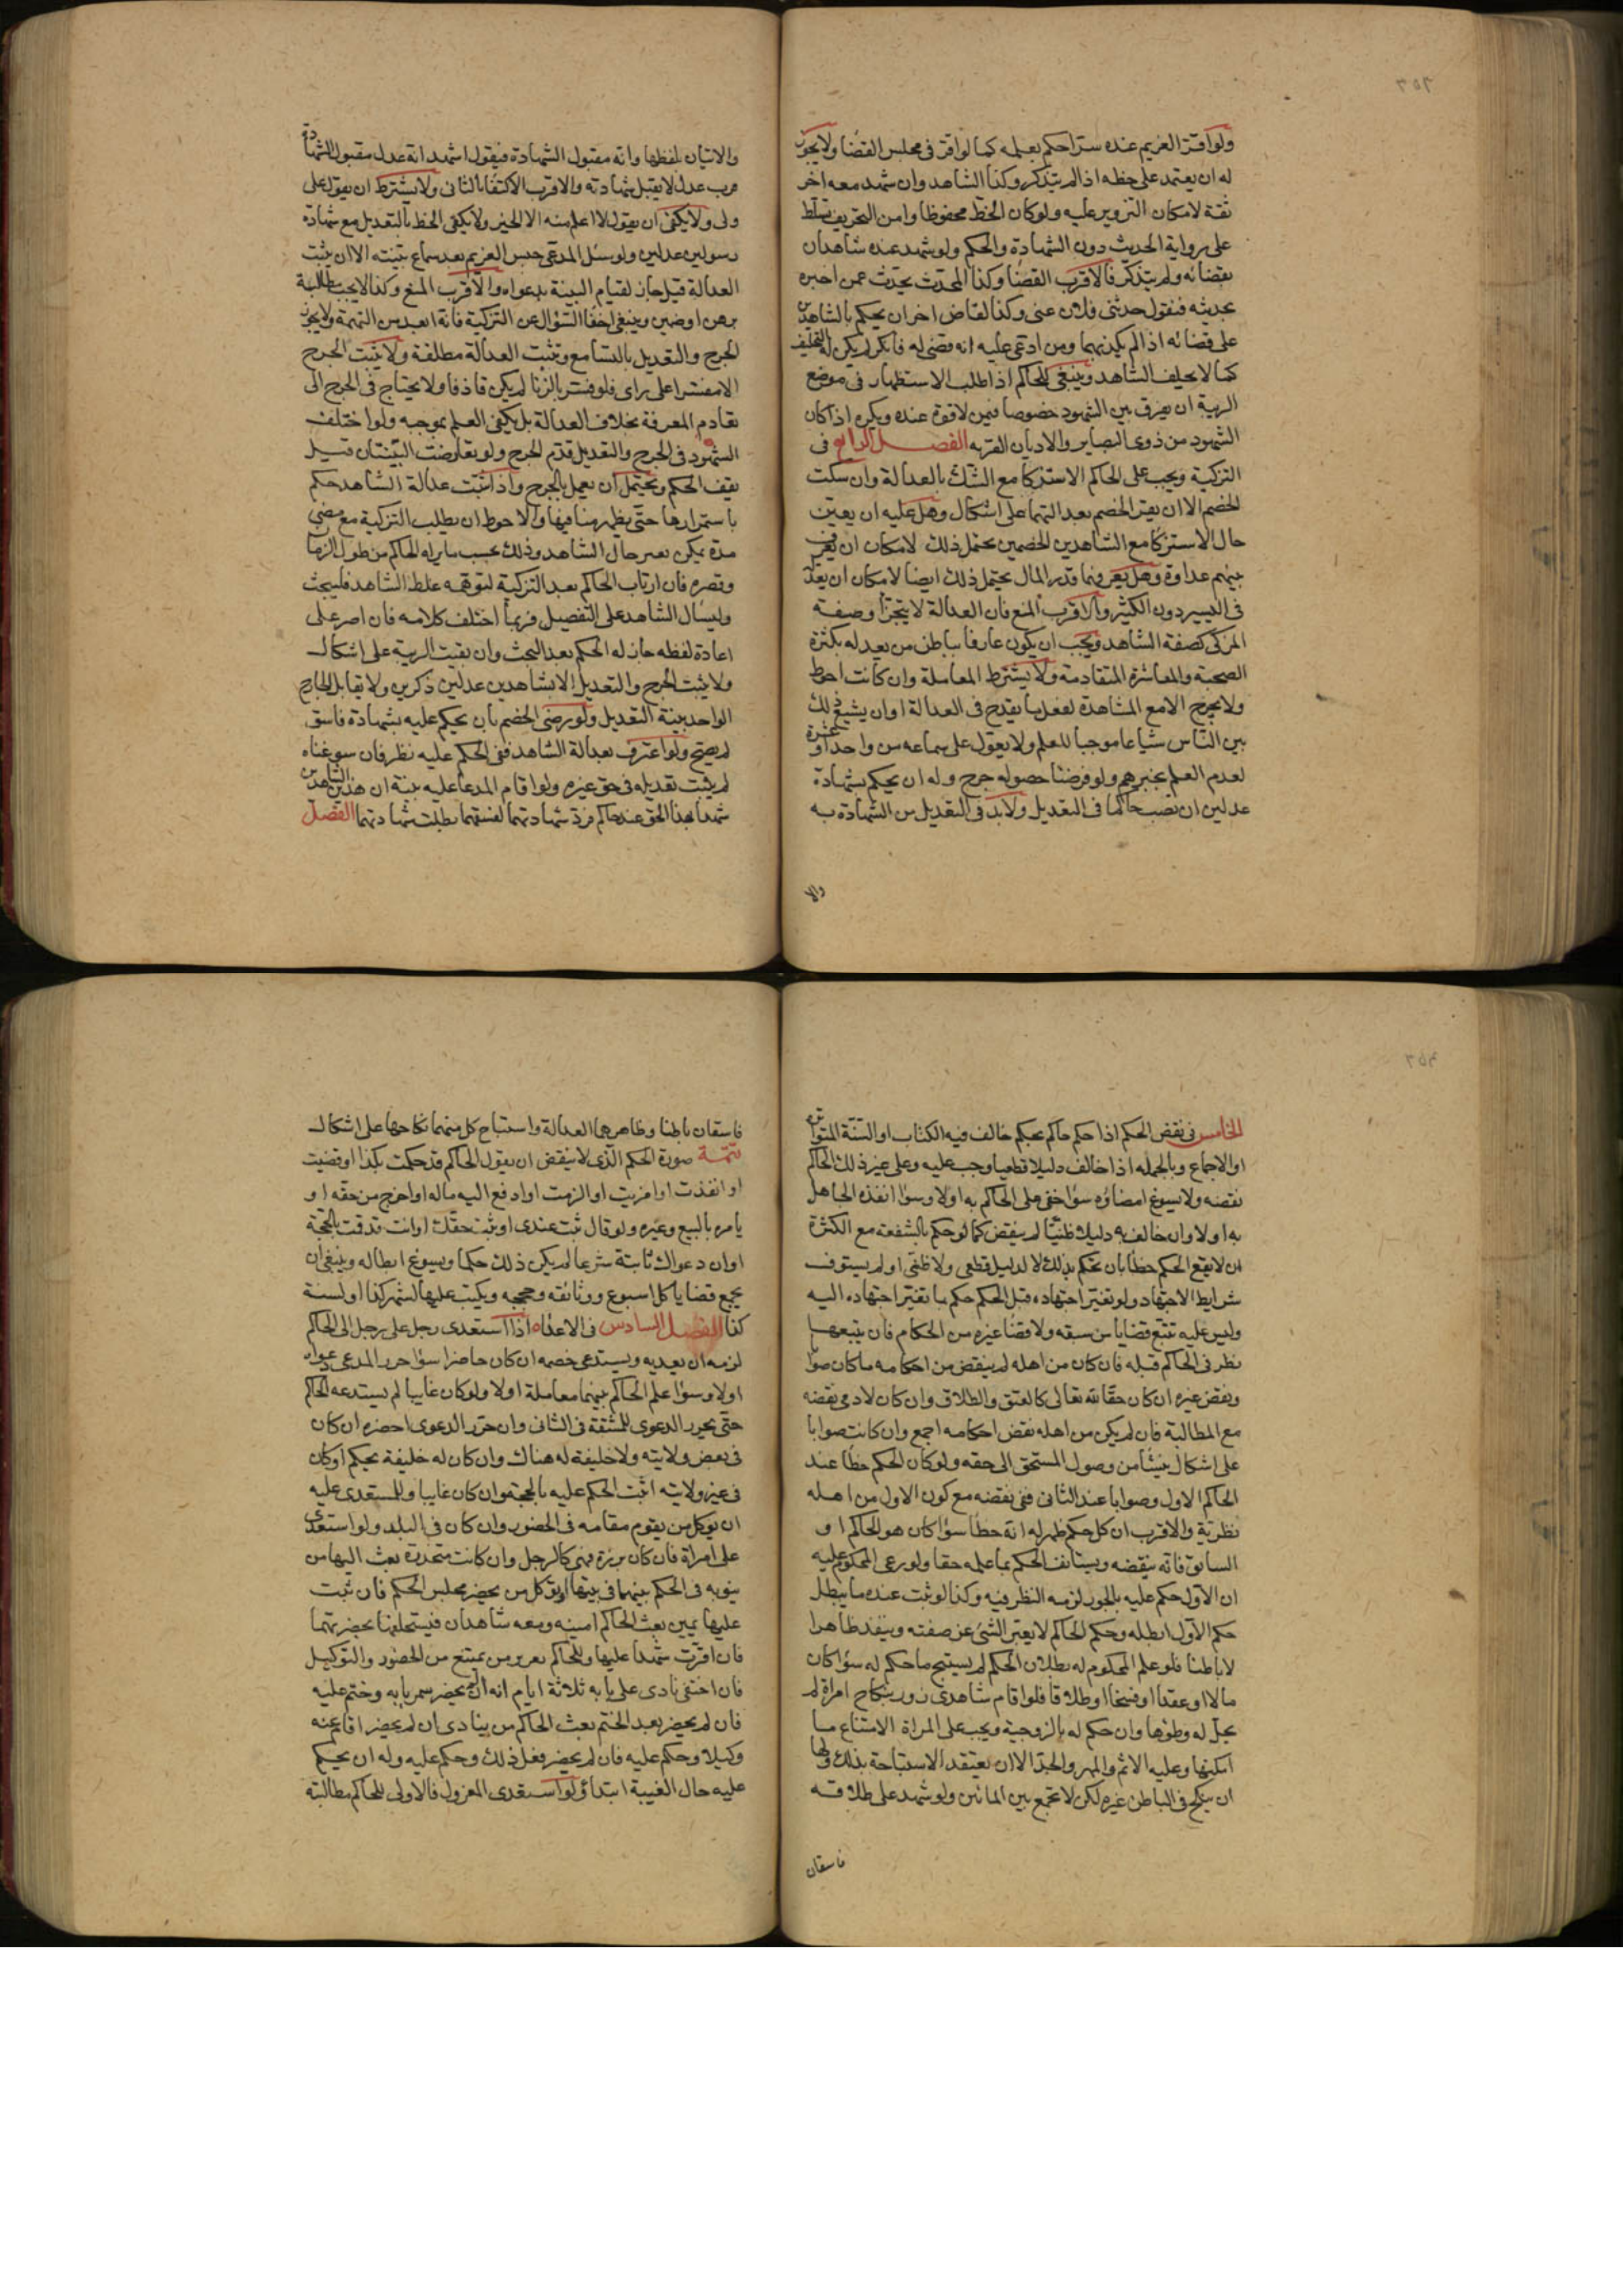 ولو اقر الغريم عنده سرا حكم بعلمه كما لو اقر في مجلس القضا ولا يجوز
له ان يعتمد على خطه اذا لم يتذكر وكذا الشاهد وان شهد معه اخر
ثقة لامكان التزوير عليه ولو كان الخط محفوظا وامن التحريف تسلط
على رواية الحديث دون الشهادة والحكم ولو شهد عنده شاهدان
بقضائه ولم يتذكر فالاقرب القضا وكذا المحدث يحدث عمن اخبره
بحديثه فيقول حدثني فلان عني وكذا لقاض اخر ان يحكم بالشاهدين
على قضائه اذا لم يكذبهما ومن ادعى عليه انه قضى له فانكر لم يكن له التحليف
كما لا يحلف الشاهد وينبغي للحاكم اذا طلب الاستظهار في موضع
الريبة ان يفرق بين الشهود خصوصا فيمن لا قوة عنده ويكره اذا كان
الشهود من ذوى البصاير والاديان القويه الفصل الرابع في
التزكية ويجب على الحاكم الاستزكا مع الشك بالعدالة وان سكت
الخصم الا ان يقر الخصم بعدالتهما على اشكال وهل عليه ان يعين
حال الاستزكا مع الشاهدين الخصمين يحتمل ذلك لامكان ان يعرف
بينهم عداوة وهل يعرفهما قدر المال يحتمل ذلك ايضا لامكان ان يعدل
في اليسير دون الكثير والاقرب المنع فان العدالة لا يتجزأ وصفة
المزكى كصفة الشاهد ويجب ان يكون عارفا بباطن من يعدله بكثرة
الصحبة والمعاشرة المتقادمة ولا يشترط المعاملة وان كانت احوط
ولا يجرح الا مع المشاهدة لفعل ما يقدح في العدالة او ان يشيع ذلك
بين الناس شياعا موجبا للعلم ولا يعول على سماعه من واحد او عشرة
لعدم العلم بخبرهم ولو فرضنا حصوله جرح وله ان يحكم بشهادة
عدلين ان نصب حاكما في التعديل ولا بد في التعديل من الشهادة به
والا
والاتيان بلفظها وانه مقبول الشهادة فيقول اشهد انه عدل مقبول الشهادة
فرب عدل لا يقبل شهادته والاقرب الاكتفا بالثاني ولا يشترط ان يقول على
ولى ولا يكفي ان يقول لا اعلم منه الا الخير ولا يكفي الخط بالتعديل مع شهادة
رسولين عدلين ولو سئل المدعى حبس الغريم بعد سماع بينته الا ان يثبت
العدالة قيل جاز لقيام البينة بدعواه والاقرب المنع وكذا لا يجب مطالبة
برهن او ضمين وينبغي اخفا السؤال عن التزكية فانه ابعد من التهمة ولا يجوز
الجرح والتعديل بالتسامع وتثبت العدالة مطلقة ولا يثبت الجرح
الا مفسرا على راى فلو فسر بالزنا لم يكن قاذفا ولا يحتاج في الجرح الى
تقادم المعرفة بخلاف العدالة بل يكفي العلم بموجبه ولو اختلف
الشهود في الجرح والتعديل قدم الجرح ولو تعارضت البينتان قيل
يقف الحكم ويحتمل ان يعمل بالجرح واذا ثبت عدالة الشاهد حكم
باستمرارها حتى يظهر منافيها والاحوط ان يطلب التزكية مع مضى
مدة يمكن تغير حال الشاهد وذلك بحسب ما يراه الحاكم من طول الزمان
وقصره فان ارتاب الحاكم بعد التزكية لتوهمه غلط الشاهد فليبحث
وليسأل الشاهد على التفصيل فربما اختلف كلامه فان اصر على
اعادة لفظه جاز له الحكم بعد البحث وان بقيت الريبة على اشكال
ولا يثبت الجرح والتعديل الا بشاهدين عدلين ذكرين ولا يقابل الجارح
الواحد بينة التعديل ولو رضى الخصم بان يحكم عليه بشهادة فاسق
لم يصح ولو اعترف بعدالة الشاهد ففي الحكم عليه نظر فان سوغناه
لم يثبت تعديله في حق غيره ولو اقام المدعا عليه بينة ان هذين الشاهدين
شهدا بهذا الحق عند حاكم فرد شهادتهما لفسقهما بطلت شهادتهما الفصل
الخامس في نقض الحكم اذا حكم حاكم بحكم خالف فيه الكتاب او السنة المتواترة
او الاجماع وبالجملة اذا خالف دليلا قطعيا وجب عليه وعلى غير ذلك الحاكم
نقضه ولا يسوغ امضاؤه سوا خفى على الحاكم به او لا وسوا انفذه الجاهل
به او لا وان خالف به دليلا ظنيا لم ينقض كما لو حكم بالشفعة مع الكثرة
ان لا يقع الحكم خطا بان حكم بذلك لا لدليل قطعي ولا ظني او لم يستوف
شرايط الاجتهاد ولو تغير اجتهاده قبل الحكم حكم بما تغير اجتهاده اليه
وليس عليه تتبع قضايا من سبقه ولا قضا غيره من الحكام فان تتبعها
نظر في الحاكم قبله فان كان من اهله لم ينقض من احكامه ما كان صوابا
ونقض غيره ان كان حقا لله تعالى كالعتق والطلاق وان كان لادمى نقضه
مع المطالبة فان لم يكن من اهله نقض احكامه اجمع وان كانت صوابا
على اشكال ينشأ من وصول المستحق الى حقه ولو كان الحكم خطا عند
الحاكم الاول وصوابا عند الثاني ففي نقضه مع كون الاول من اهله
نظر والاقرب ان كل حكم ظهر له انه خطا سوا كان هو الحاكم او
السابق فانه ينقضه ويستانف الحكم بما علمه حقا ولو زعى المحكوم عليه
ان الاول حكم عليه بالجور لزمه النظر فيه وكذا لو ثبت عنده ما يبطل
حكم الاول ابطله وحكم الحاكم لا يغير الشئ عن صفته وينفذ ظاهرا
لا باطنا فلو علم المحكوم له بطلان الحكم لم يستبح ما حكم له سوا كان
مالا او عقدا او فسخا او طلاقا فلو اقام شاهدى زور بنكاح امراة لم
يحل له وطؤها وان حكم له بالزوجية ويجب على المراة الامتناع ما
امكنها وعليه الاثم والمهر والحد الا ان يعتقد الاستباحة بذلك ولها
ان ينكح في الباطن غيره لكن لا تجمع بين المائين ولو شهد على طلاقه
فاسقان
فاسقان باطنا وظاهرهما العدالة واستباح كل منهما نكاحها على اشكال
تتمة صورة الحكم الذى لا ينقض ان يقول الحاكم قد حكمت بكذا او قضيت
او انفذت او امضيت او الزمت او ادفع اليه ماله او اخرج من حقه او
يامره بالبيع وغيره ولو قال ثبت عندى او ثبت حقك او انت قد قمت بالحجة
او ان دعواك ثابتة شرعا لم يكن ذلك حكما ويسوغ ابطاله وينبغي ان
يجمع قضايا كل اسبوع ووثائقه وحججه ويكتب عليها لشهر كذا او لسنة
كذا الفصل السادس في الاعداء اذا استعدى رجل على رجل الى الحاكم
لزمه ان يعديه ويستدعى خصمه ان كان حاضرا سوا حرر المدعى دعواه
او لا وسوا علم الحاكم بينهما معاملة او لا ولو كان غايبا لم يستدعه الحاكم
حتى يحرر الدعوى للمشقة في الثانى وان حرر الدعوى احضره ان كان
في بعض ولايته ولا خليفة له هناك وان كان له خليفة يحكم او كان
في غير ولايته اثبت الحكم عليه بالحجة وان كان غايبا وللمستعدى عليه
ان يوكل من يقوم مقامه في الحضور وان كان في البلد ولو استعدى
على امراة فان كان برزة فهى كالرجل وان كانت مخدرة بعث اليها من
ينوبه في الحكم بينهما في بيتها او توكل من يحضر مجلس الحكم فان ثبت
عليها يمين بعث الحاكم امينه ومعه شاهدان فيستحلفها بحضرتهما
فان اقرت شهدا عليها وللحاكم تعزير من يمتنع من الحضور والتوكيل
فان اختفى نادى على بابه ثلاثة ايام انه ان لم يحضر سمر بابه وختم عليه
فان لم يحضر بعد الختم بعث الحاكم من ينادى ان لم يحضر اقام عنه
وكيلا وحكم عليه فان لم يحضر فعل ذلك وحكم عليه وله ان يحكم
عليه حال الغيبة ابتداؤ لو استعدى المعزول فالاولى للحاكم مطالبته